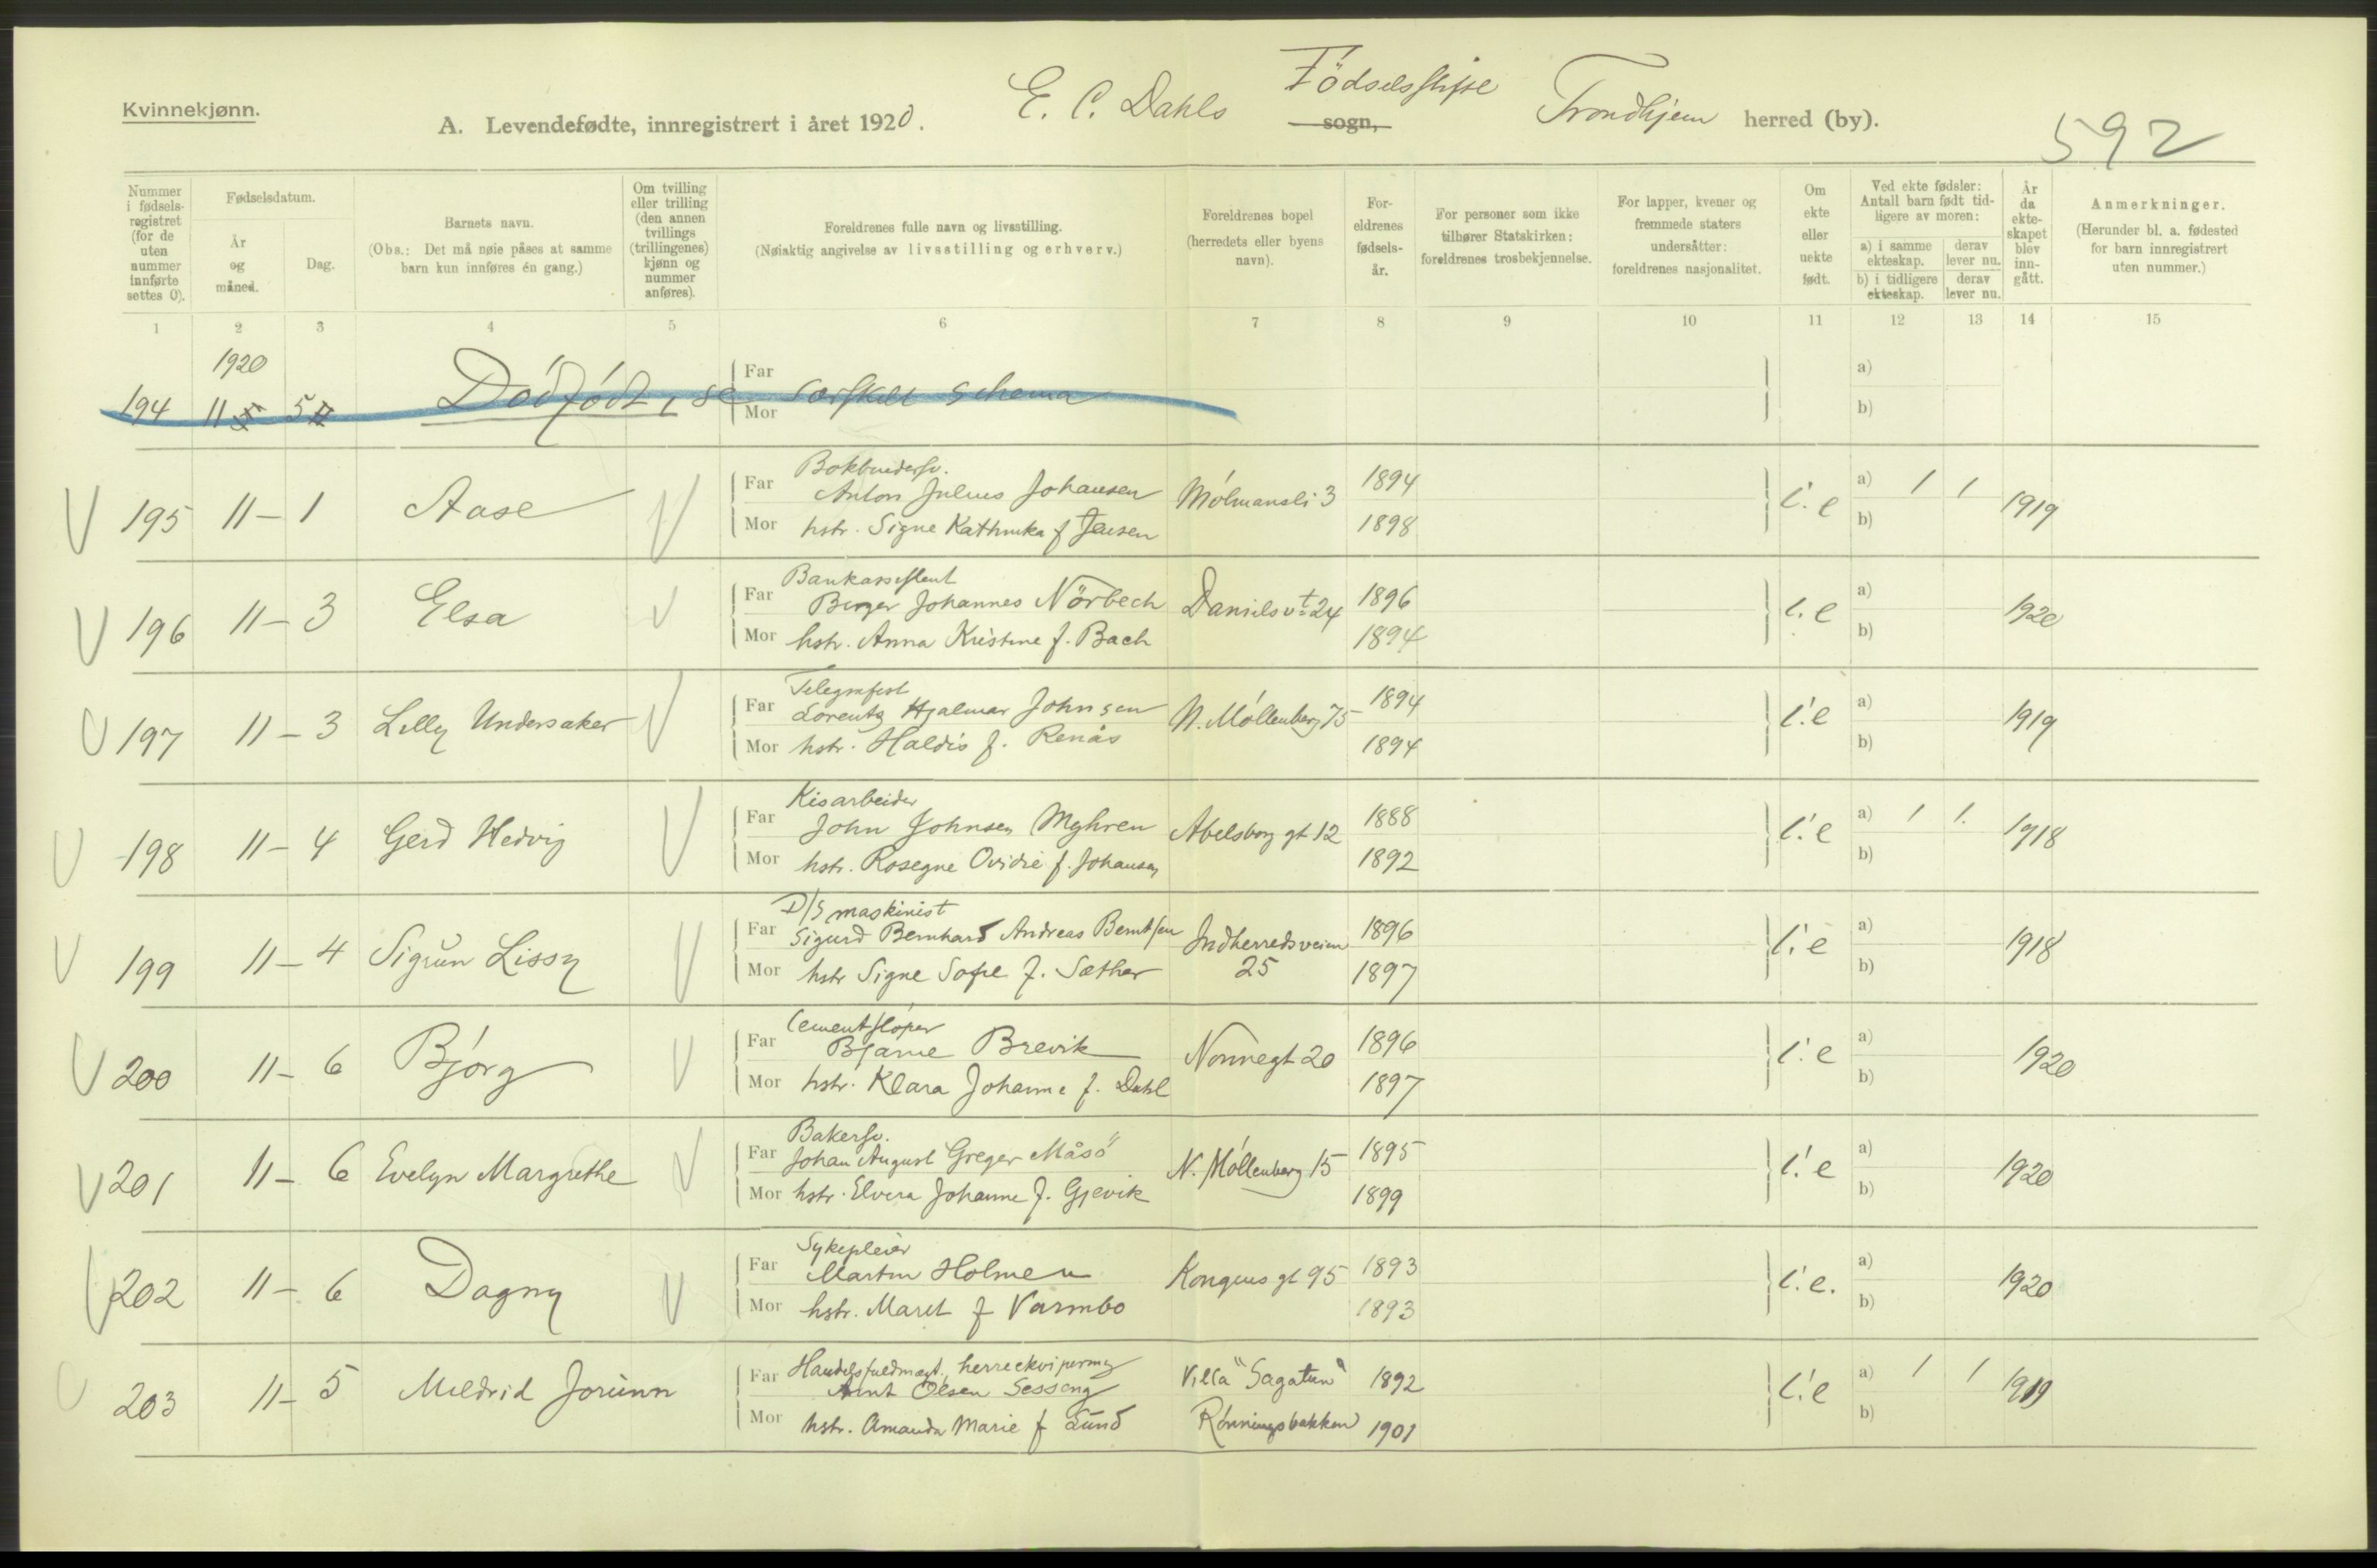 Kvinnekjønn.
A. Levendefødte, innregistrert i året 1920.
E. C. Dahls Födselsstiftelse
sogn,
Trondhjem herred (by).
592
Nummer i fødselsregistret (for de uten nummer innførte settes 0).
Fødselsdatum.
År og måned.
Dag.
Barnets navn.
(Obs.: Det må nøie påses at samme barn kun innføres én gang.)
Om tvilling eller trilling (den annen tvillings (trillingenes) kjønn og nummer anføres).
Foreldrenes fulle navn og livsstilling.
(Nøiaktig angivelse av livsstilling og erhverv.)
Foreldrenes bopel (herredets eller byens navn).
Foreldrenes fødselsår.
For personer som ikke tilhører Statskirken: foreldrenes trosbekjennelse.
For lapper, kvener og fremmede staters undersåtter: foreldrenes nasjonalitet.
Om ekte eller uekte født.
Ved ekte fødsler: Antall barn født tidligere av moren:
a) i samme ekteskap.
derav lever nu.
b) i tidligere ekteskap.
derav lever nu.
År da ekteskapet blev inngått.
Anmerkninger.
(Herunder bl. a. fødested for barn innregistrert uten nummer.)
1 2 3 4 5 6 7 8 9 10 11 12 13 14 15
1920
Far a)
194 11 5 Dødfødt, se særskilt schema
Mor b)
Bokbindersv.
Far Anton Julius Johansen 1894 a) 1 1
195 11-1 Aase Mølmansli 3 l.e 1919
Mor hstr. Signe Kathinka f Jensen 1898 b)
Bankassistent
Far Birger Johannes Nörbech 1896 a)
196 11-3 Elsa Danielsvt. 24 l.e 1920
Mor hstr. Anna Kristine f. Bach 1894 b)
Telegrafist
Far Lorentz Hjalmar Johnsen 1894 a)
197 11-3 Lilly Undersaker N. Møllenberg 75 l.e 1919
Mor hstr. Haldis f. Renås 1894 b)
Kisarbeider
Far John Johnsen Myhren 1888 a) 1 1.
198 11-4 Gerd Hedvig Abelsborg gt 12 l.e 1918
Mor hstr. Rosegne Ovidie f. Johansen 1892 b)
D/S maskinist
Far Sigurd Bernhard Andreas Berntsen 1896 a)
199 11-4 Sigrun Lissy Indherredsveien 25 l.e 1918
Mor hstr Signe Sofie f. Sæther 1897 b)
Cementstøper
Far Bjarne Brevik 1896 a)
200 11-6 Bjørg Nonnegt 20 l.e 1920
Mor hstr. Klara Johanne f. Dahl 1897 b)
Bakersv.
Far Johan August Greger Måsö 1895 a)
201 11-6 Evelyn Margrethe N. Møllenberg 15 l.e 1920
Mor hstr. Elvera Johanne f. Gjevik 1899 b)
Sykepleier
Far Martin Holmen 1893 a)
202 11-6 Dagny Kongens gt 95 l.e. 1920
Mor hstr. Maret f Varmbo 1893 b)
Handelsfuldmægt. herreekvipering
Far Arnt Olsen Sesseng Villa "Sagatun" 1892 a) 1 1
203 11-5 Mildrid Jorunn l.e 1919
Mor hstr. Amanda Marie f Lund Rønningsbakken 1901 b)